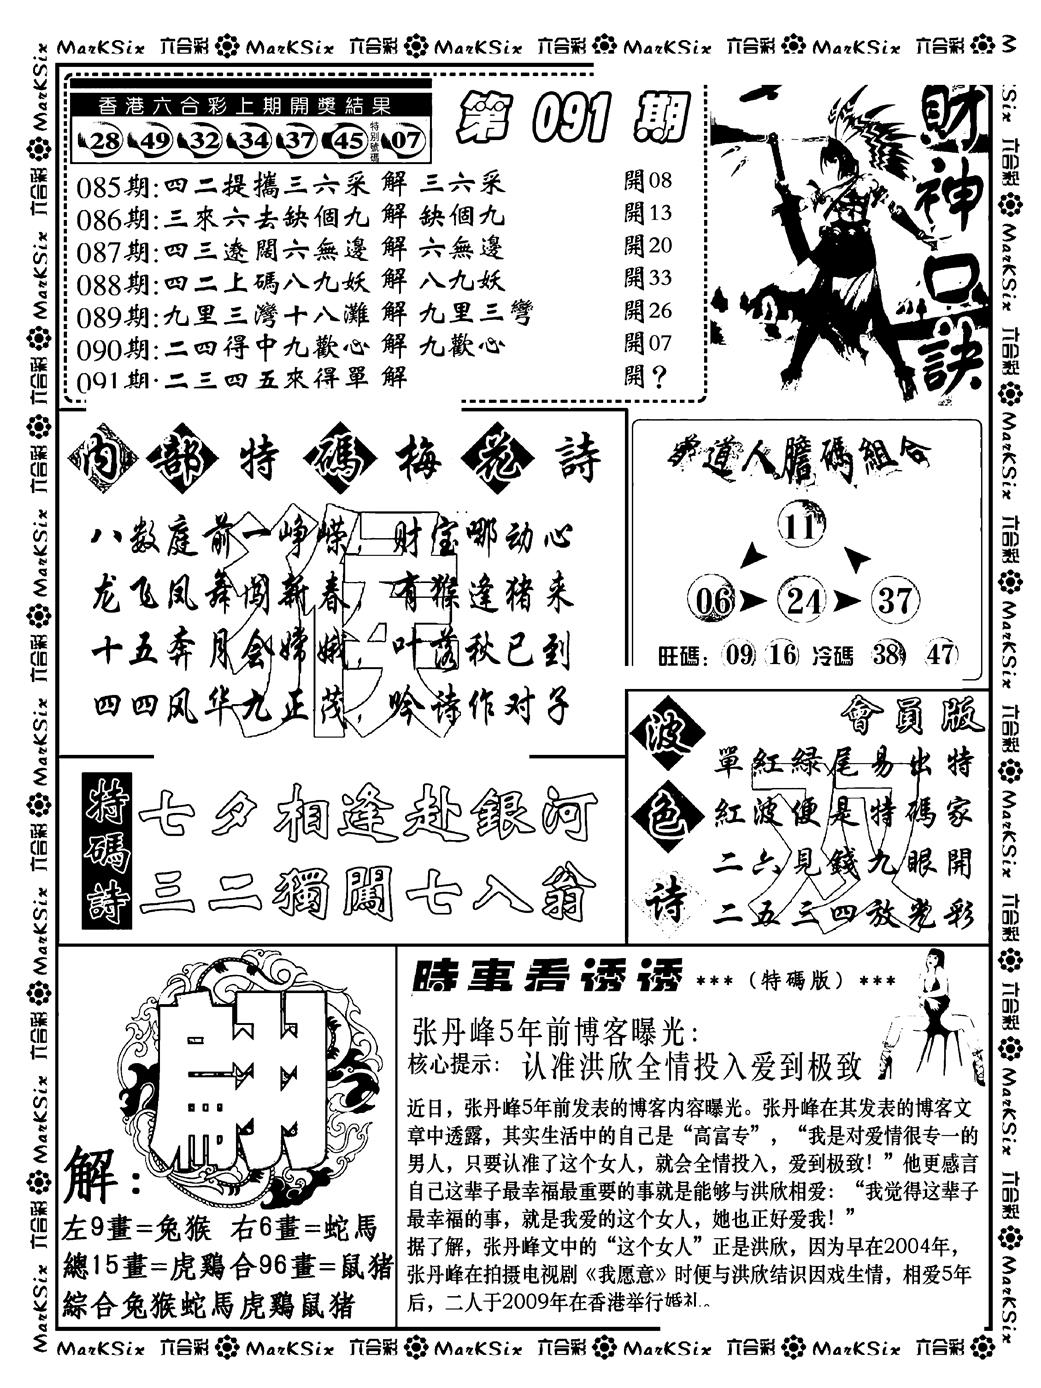 MarKSix 六合彩 MarKSix 六合彩 MarKSix 六合彩 MarKSix 六合彩 MarKSix 六合彩
香港六合彩上期開獎結果
28 49 32 34 37 45 特別號碼 07
第 091 期
財神口訣
085期:四二提攜三六采 解 三六采 開08
086期:三來六去缺個九 解 缺個九 開13
087期:四三遼闊六無邊 解 六無邊 開20
088期:四二上碼八九妖 解 八九妖 開33
089期:九里三灣十八灘 解 九里三彎 開26
090期:二四得中九歡心 解 九歡心 開07
091期:二三四五來得單 解 開?
內部特碼梅花詩
八数庭前一峥嵘，财宝哪动心
龙飞凤舞闯新春，有猴逢猪来
十五奔月会嫦娥，叶落秋已到
四四风华九正茂，吟诗作对子
猴
道人膽碼組合
11
06 24 37
旺碼：09 16 冷碼 38 47
特碼詩
七夕相逢赴銀河
三二獨闖七入翁
波色诗
會員版
單紅緑尾易出特
紅波便是特碼家
二六見錢九眼開
二五三四放光彩
双
解：
左9畫=兔猴 右6畫=蛇馬
總15畫=虎鷄合96畫=鼠猪
綜合兔猴蛇馬虎鷄鼠猪
時事看诱诱 ***（特碼版）***
张丹峰5年前博客曝光：
核心提示： 认准洪欣全情投入爱到极致
近日，张丹峰5年前发表的博客内容曝光。张丹峰在其发表的博客文
章中透露，其实生活中的自己是“高富专”，“我是对爱情很专一的
男人，只要认准了这个女人，就会全情投入，爱到极致！”他更感言
自己这辈子最幸福最重要的事就是能够与洪欣相爱：“我觉得这辈子
最幸福的事，就是我爱的这个女人，她也正好爱我！”
据了解，张丹峰文中的“这个女人”正是洪欣，因为早在2004年，
张丹峰在拍摄电视剧《我愿意》时便与洪欣结识因戏生情，相爱5年
后，二人于2009年在香港举行婚礼。
MarKSix 六合彩 MarKSix 六合彩 MarKSix 六合彩 MarKSix 六合彩 MarKSix 六合彩